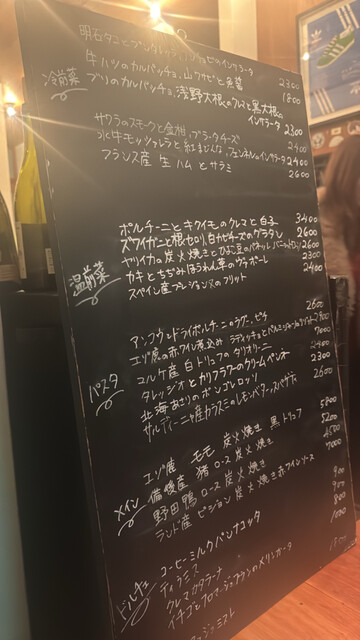 明石タコと
インサラータ 2300
冷前菜
牛ハツのカルパッチョ、山ワサビと魚醤 1800
ブリのカルパッチョ、浅野大根のクレマと黒大根の
インサラータ 2300
サワラのスモークと金柑、ブラータチーズ 2400
水牛モッツァレラと紅まどんな、フェンネルのインサラータ 2400
フランス産 生ハムとサラミ 2600
温前菜
ポルチーニとキクイモのクレマと白子 3400
ズワイガニと根セロリ、白カビチーズのグラタン 2600
ヤリイカの炭火焼きとひよこ豆のパネッレ 2600
カキとちぢみほうれん草のヴァポーレ 2300
スペイン産 のフリット 2400
パスタ
アンコウとドライポルチーニのラグー、ピチ 2600
エゾ鹿の赤ワイン煮込み ラディッキョと 2900
コルケ産 白トリュフのタリオリーニ 7000
タレッジオとカリフラワーのクリームペンネ 2400
北海あさりのボンゴレロッソ 2300
サルディーニャ産カラスミのレモンバター、スパゲティ 2600
メイン
エゾ鹿 モモ 炭火焼き 黒トリュフ 5800
備後産 猪 ロース 炭火焼き 5200
野田鴨 ロース 炭火焼き 4500
ランド産 ピジョン 炭火焼き 赤ワインソース 7000
ドルチェ
コーヒーミルクパンナコッタ 900
ティラミス 900
クレマカタラーナ 800
イチゴとフロマージュブランのメリンガータ 1000